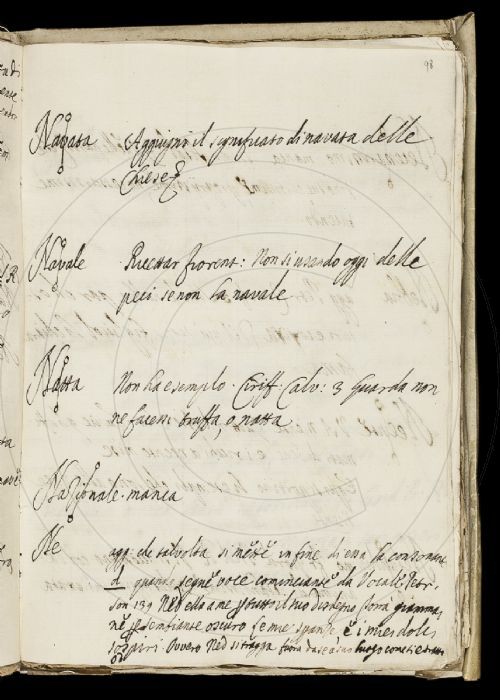 98
Navata Aggiugni il significato di navata delle
Chiese
Navale Ricettar fiorent: Non si usando oggi delle
peci se non la navale
Natta Non ha esemplo. Ciriff. Calv: 3 Guarda non
ne facessi truffa, o natta
Nazionale. manca
Ne agg: che talvolta si mette in fine di essa la consonante
d quando segue voce cominciante da Vocale Petr.
Son 139 Ned ella a me tutto il suo disdegno
torrà giammai
nè sembiante oscuro
se mie speranze e i miei dolci
sospiri. Ovvero Ned si troppa